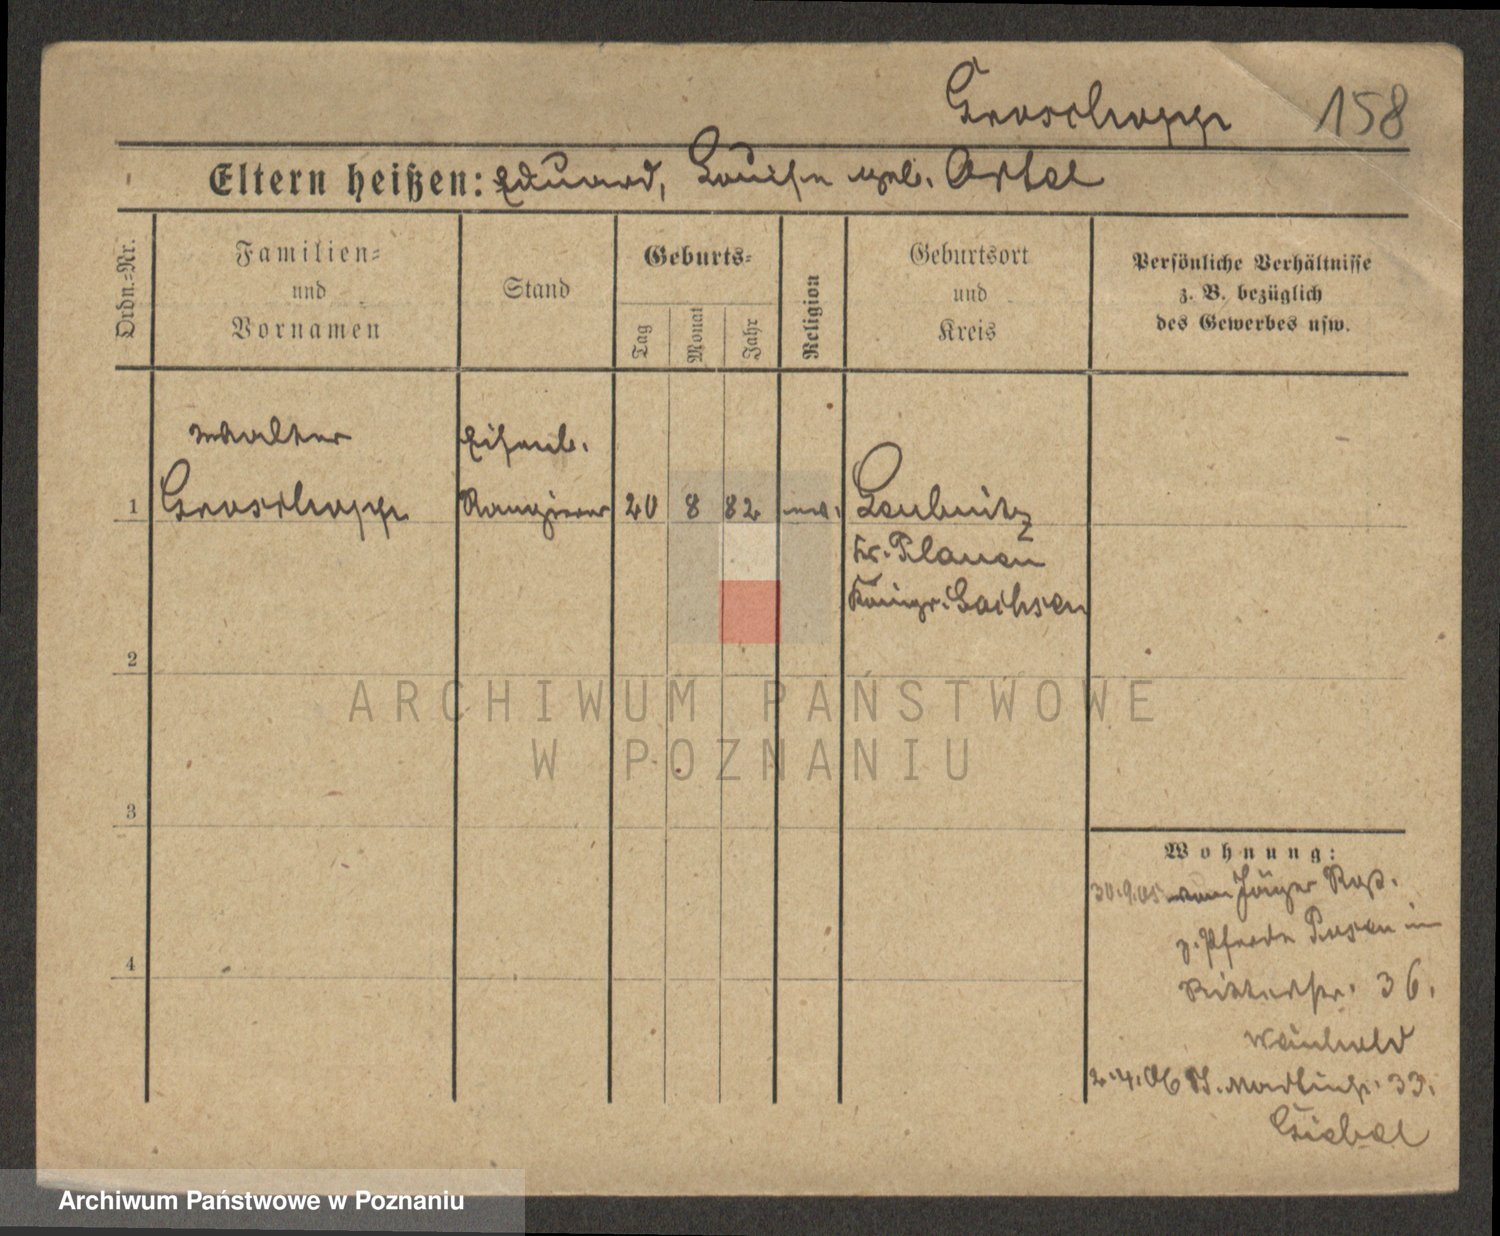 Groschopp 158
Eltern heißen: Eduard, Louise geb. Ortel
Ordn.=Nr.
Familien=
und
Vornamen
Stand
Geburts=
Tag
Monat
Jahr
Religion
Geburtsort
und
Kreis
Persönliche Verhältnisse
z. B. bezüglich
des Gewerbes usw.
Walter
Eisenb.
1 Groschopp Rangierer 20 8 82 ev. Leubnitz
Kr. Plauen
Königr. Sachsen
2
ARCHIWUM PAŃSTWOWE
W POZNANIU
3
4
Wohnung:
30.9.05 vom Jäger Rgt.
z. Pferde Posen in
Ritterstr. 36.
Weinhold
2.4.06 St. Martinstr. 33.
Giebel
Archiwum Państwowe w Poznaniu